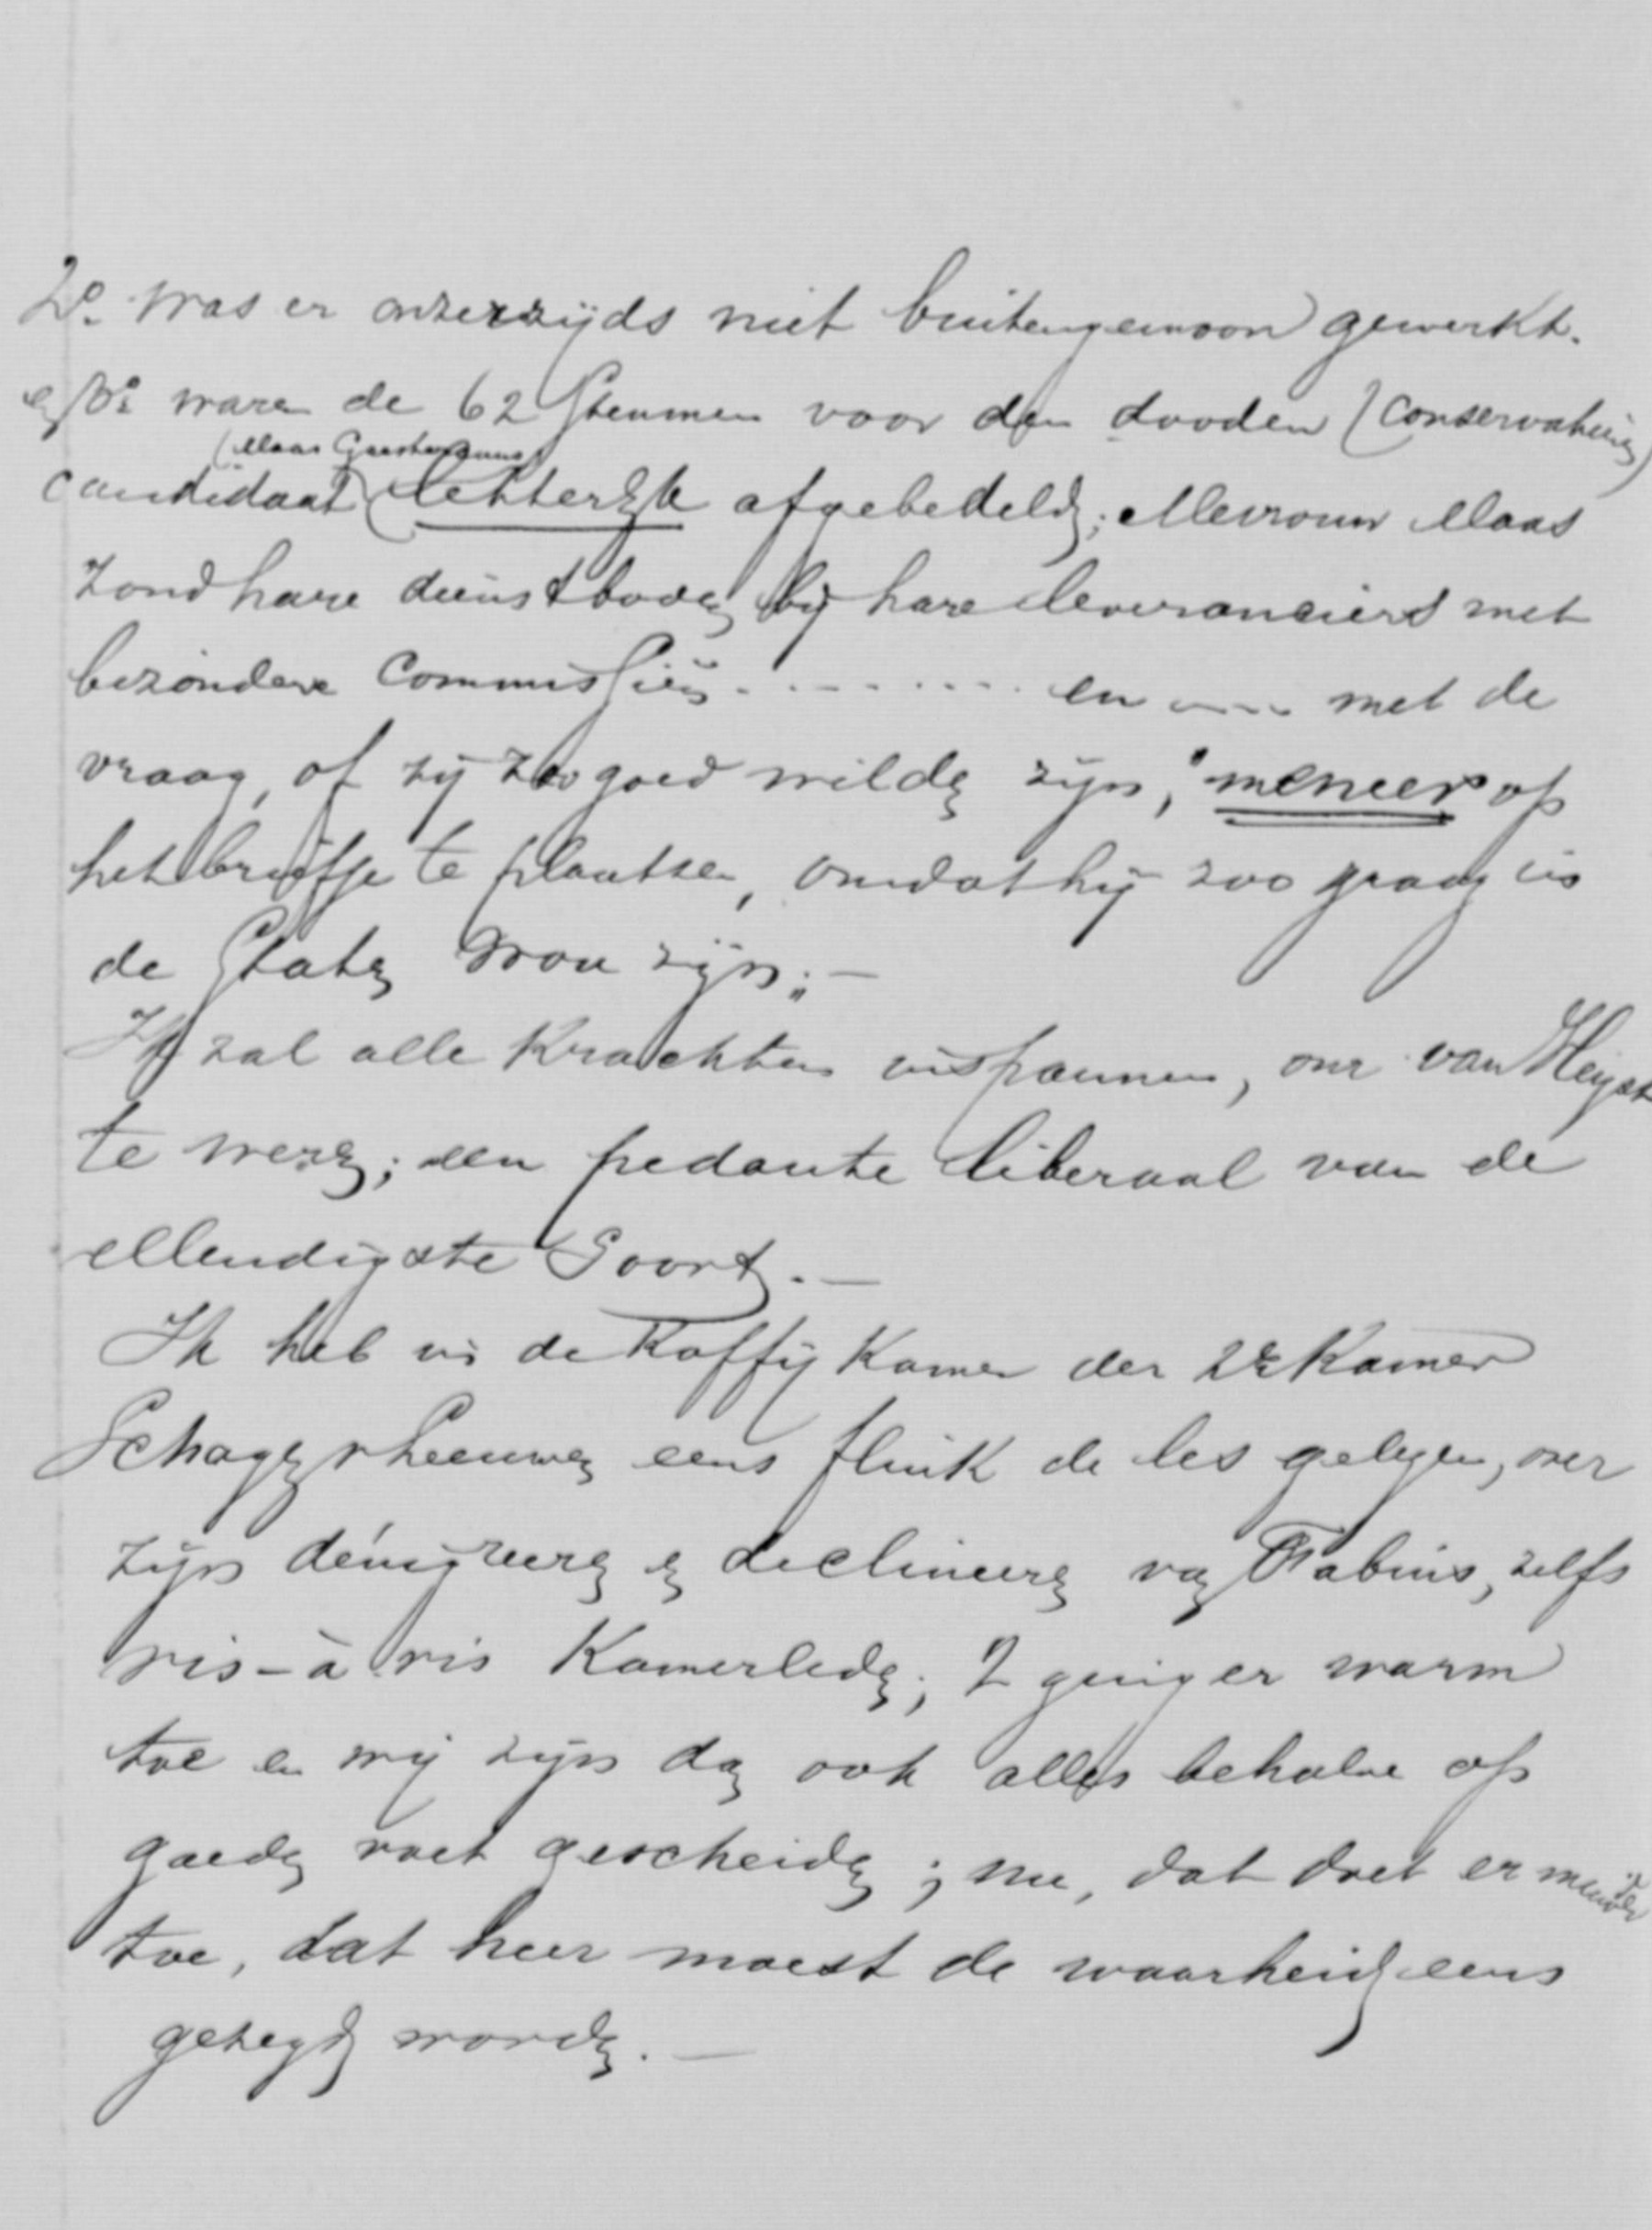 2o. was er onzerzijds niet buitengewoon gewerkt.
en 3o. waren de 62 stemmen voor den dooden (conservatieven)
(Maas Geesteranus)
candidaat letterlijk afgebedeld; Mevrouw Maas
zond hare dienstboden bij hare leveranciers met
bezondere Commissiën . - . - . - . - . . en ---- met de
vraag, of zij zoo goed wilden zijn, "meneer op
het briefje te plaatsen, omdat hij zoo graag in
de Staten wou zijn;" —
Ik zal alle krachten inspannen, om van Heyst
te weren; een pedante liberaal van de
ellendigste Soort. —
Ik heb in de Koffij Kamer der 2e Kamer
Schagen v Leeuwen eens flink de les gelezen, over
zijn dénigreeren en declineeren van Fabius, zelfs
vis-à vis Kamerleden; 't ging er warm
toe en wij zijn dan ook alles behalve op
goeden voet gescheiden; nu, dat doet er minder
toe, dat heer moest de waarheid eens
gezegd worden. —